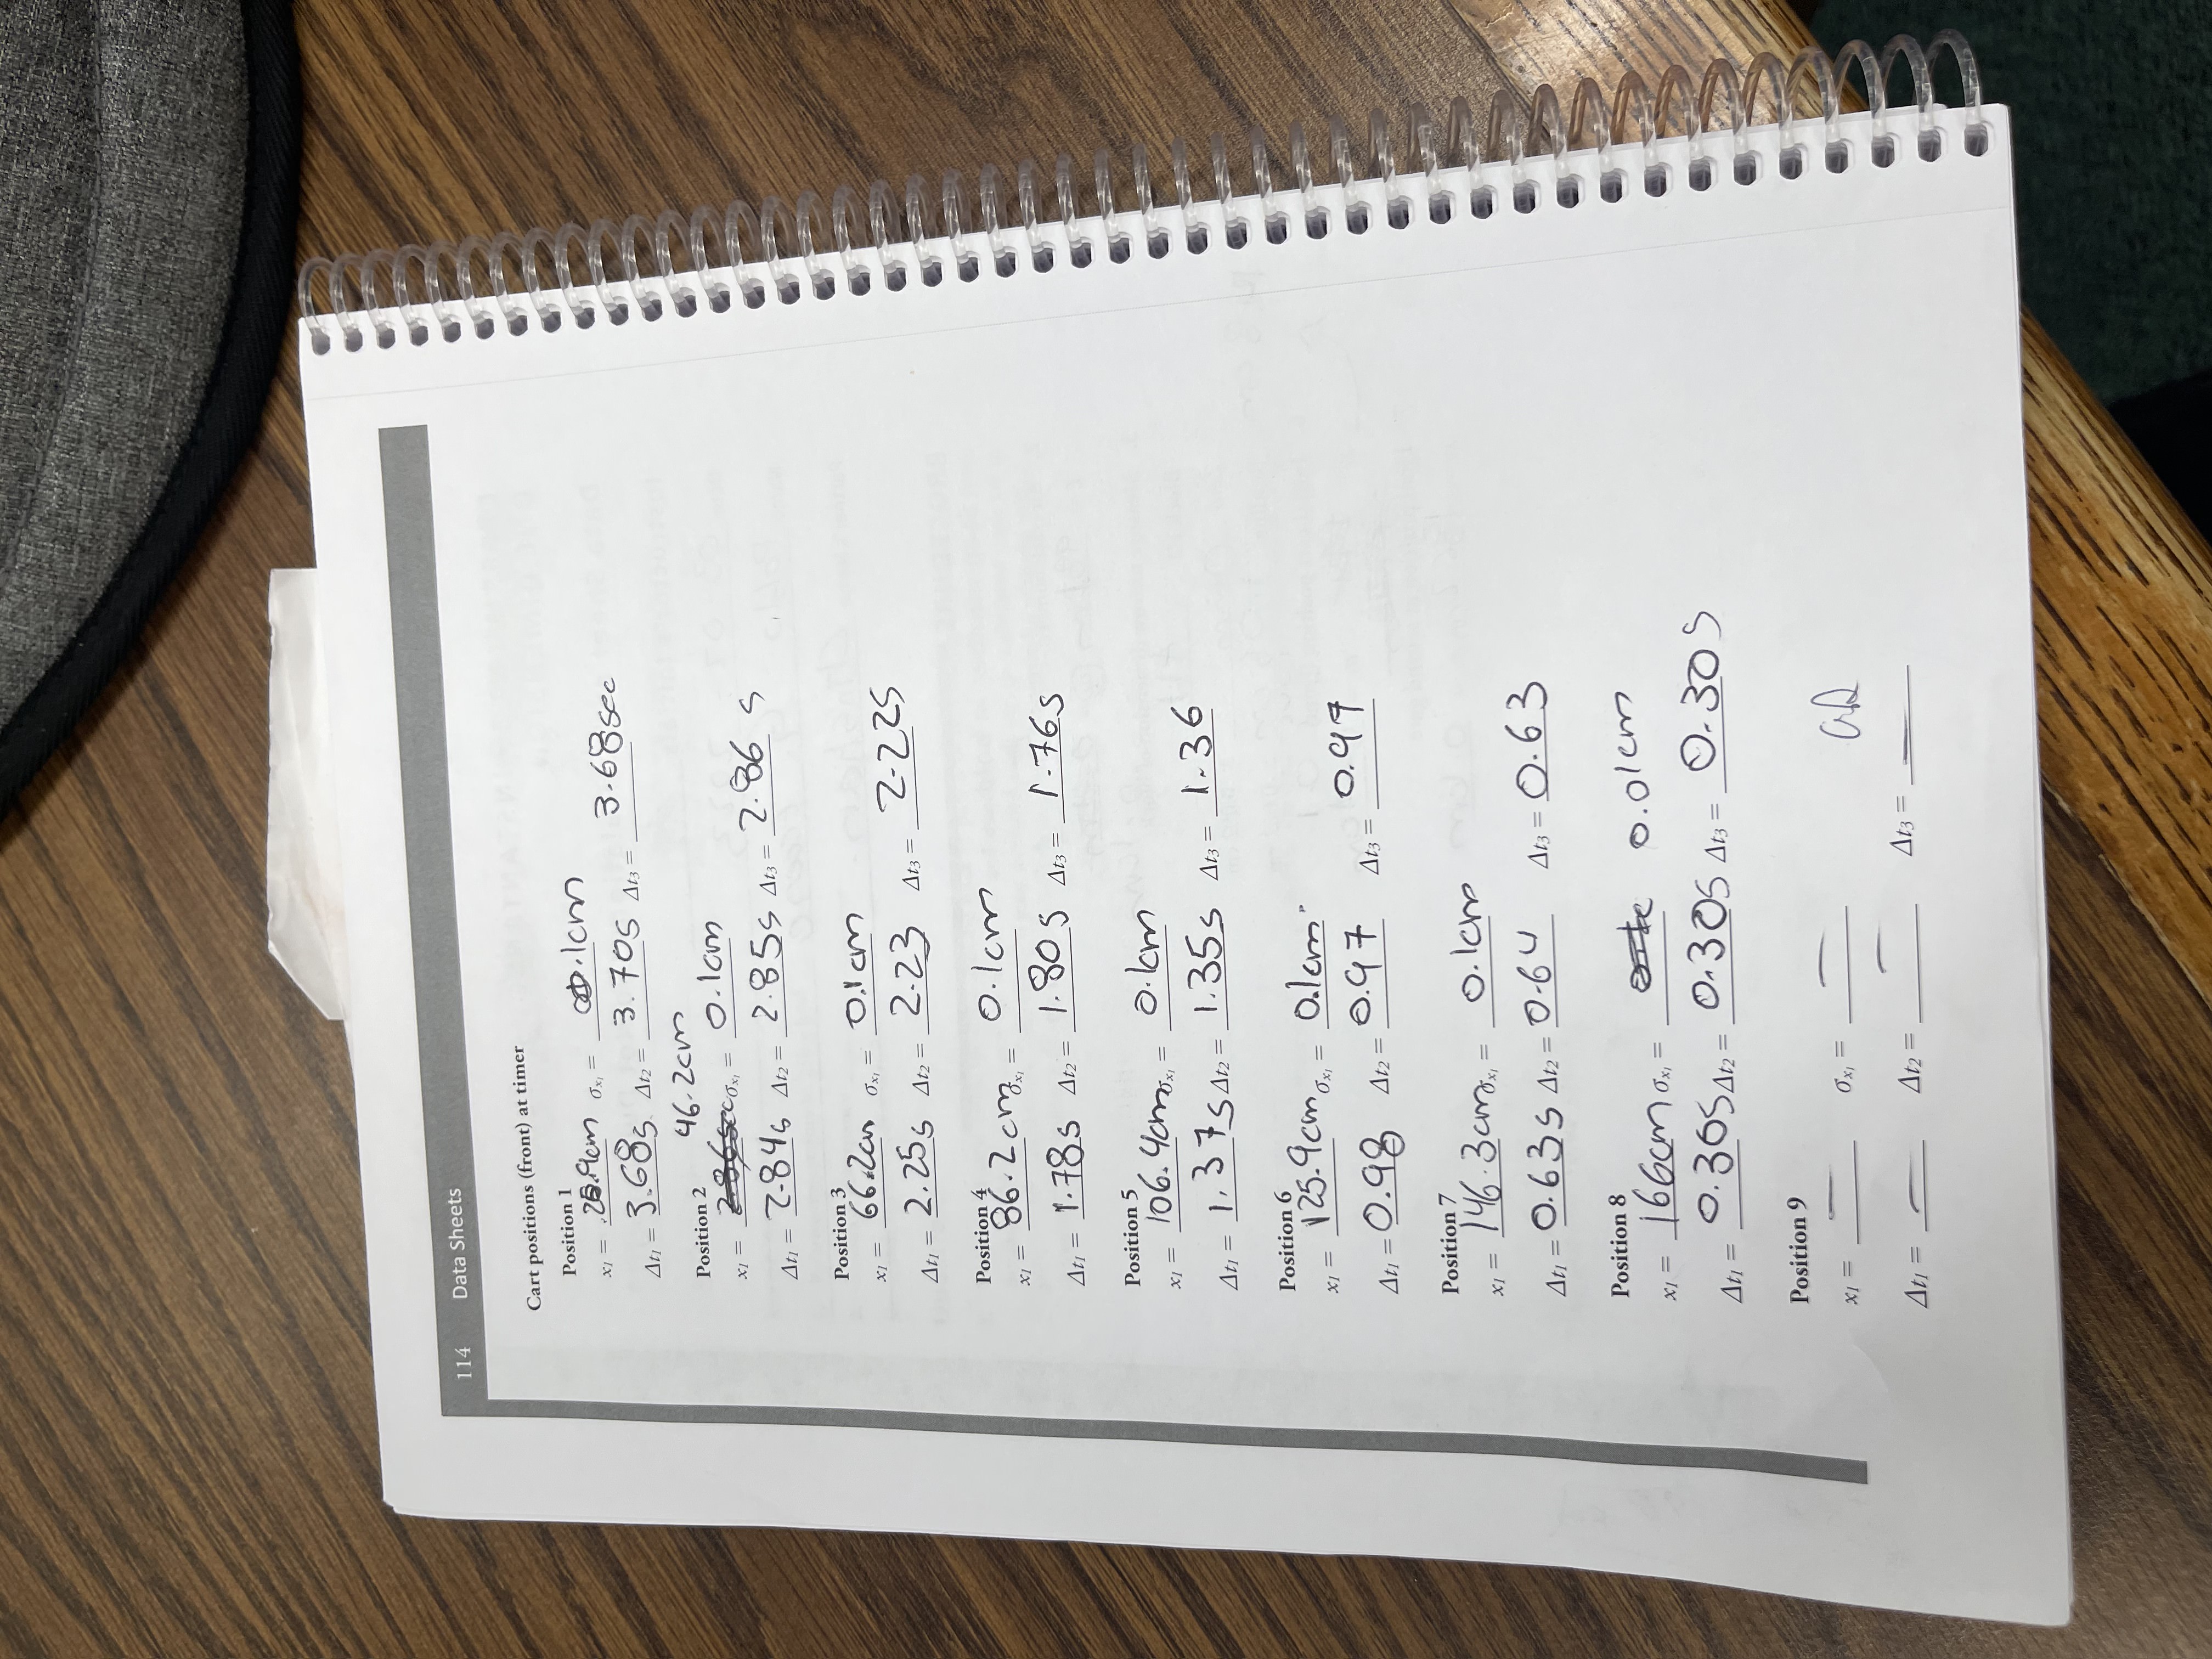 114 Data Sheets
Cart positions (front) at timer
Position 1
x₁ = cm σx₁ = .1cm
Δt₁ = 3.68s Δt₂ = 3.70s Δt₃ = 3.68sec
Position 2
46.2cm
x₁ = σx₁ = 0.1cm
Δt₁ = 2.84s Δt₂ = 2.85s Δt₃ = 2.86 s
Position 3
x₁ = 66.2cm σx₁ = 0.1cm
Δt₁ = 2.25s Δt₂ = 2.23 Δt₃ = 2.22s
Position 4
x₁ = 86.2cm σx₁ = 0.1cm
Δt₁ = 1.78s Δt₂ = 1.80s Δt₃ = 1.76s
Position 5
x₁ = 106.4cm σx₁ = 0.1cm
Δt₁ = 1.37s Δt₂ = 1.35s Δt₃ = 1.36
Position 6
x₁ = 125.9cm σx₁ = 0.1cm
Δt₁ = 0.98 Δt₂ = 0.97 Δt₃ =
Position 7
x₁ = 146.3cm σx₁ = 0.1cm
Δt₁ = 0.63s Δt₂ = 0.64 Δt₃ = 0.63
Position 8
x₁ = 166cm σx₁ = 0.01cm
Δt₁ = 0.30s Δt₂ = 0.30s Δt₃ = 0.30s
Position 9
x₁ = — σx₁ = —
Δt₁ = — Δt₂ = — Δt₃ = —